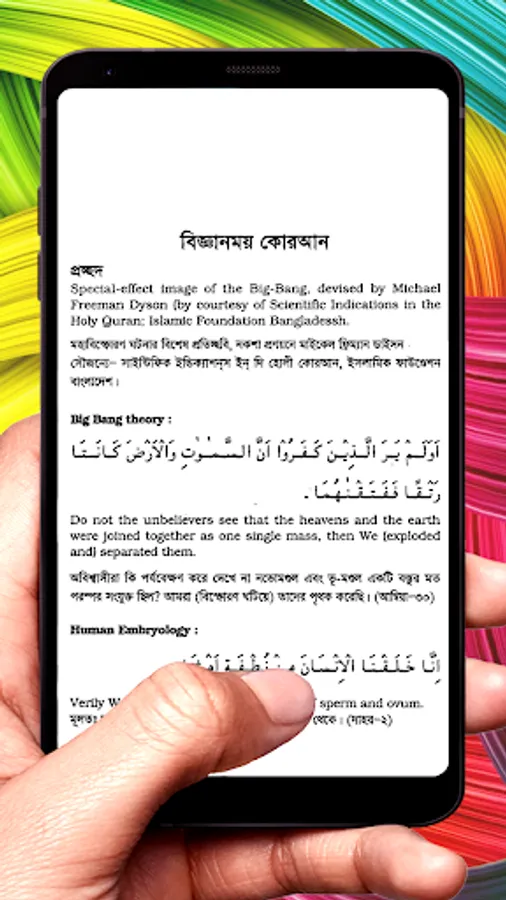 বিজ্ঞানময় কোরআন
প্রচ্ছদ
Special-effect image of the Big-Bang, devised by Michael
Freeman Dyson (by courtesy of Scientific Indications in the
Holy Quran; Islamic Foundation Bangladessh.
মহাবিস্ফোরণ ঘটনার বিশেষ প্রতিচ্ছবি, নকশা প্রণয়নে মাইকেল ফ্রিম্যান ডাইসন
সৌজন্যে– সাইন্টিফিক ইন্ডিক্যাশন্স ইন্ দি হোলী কোরআন, ইসলামিক ফাউণ্ডেশন
বাংলাদেশ।
Big Bang theory :
اَوَلَـمْ يَـرَ الَّـذِيْـنَ كَـفَـرُوْا اَنَّ الـسَّـمٰـوٰتِ وَالْاَرْضَ كَـانَـتَـا
رَتْـقًـا فَـفَـتَـقْـنٰـهُـمَـا.
Do not the unbelievers see that the heavens and the earth
were joined together as one single mass, then We [exploded
and] separated them.
অবিশ্বাসীরা কি পর্যবেক্ষণ করে দেখে না নভোমণ্ডল এবং ভূ-মণ্ডল একটি বস্তুর মত
পরস্পর সংযুক্ত ছিল? আমরা (বিস্ফোরণ ঘটিয়ে) তাদের পৃথক করেছি। (আম্বিয়া-৩০)
Human Embryology :
اِنَّا خَلَقْنَا الْاِنْسَانَ مِنْ نُّطْفَةٍ
Verily sperm and ovum.
মূলতঃ থেকে। (দাহর-২)